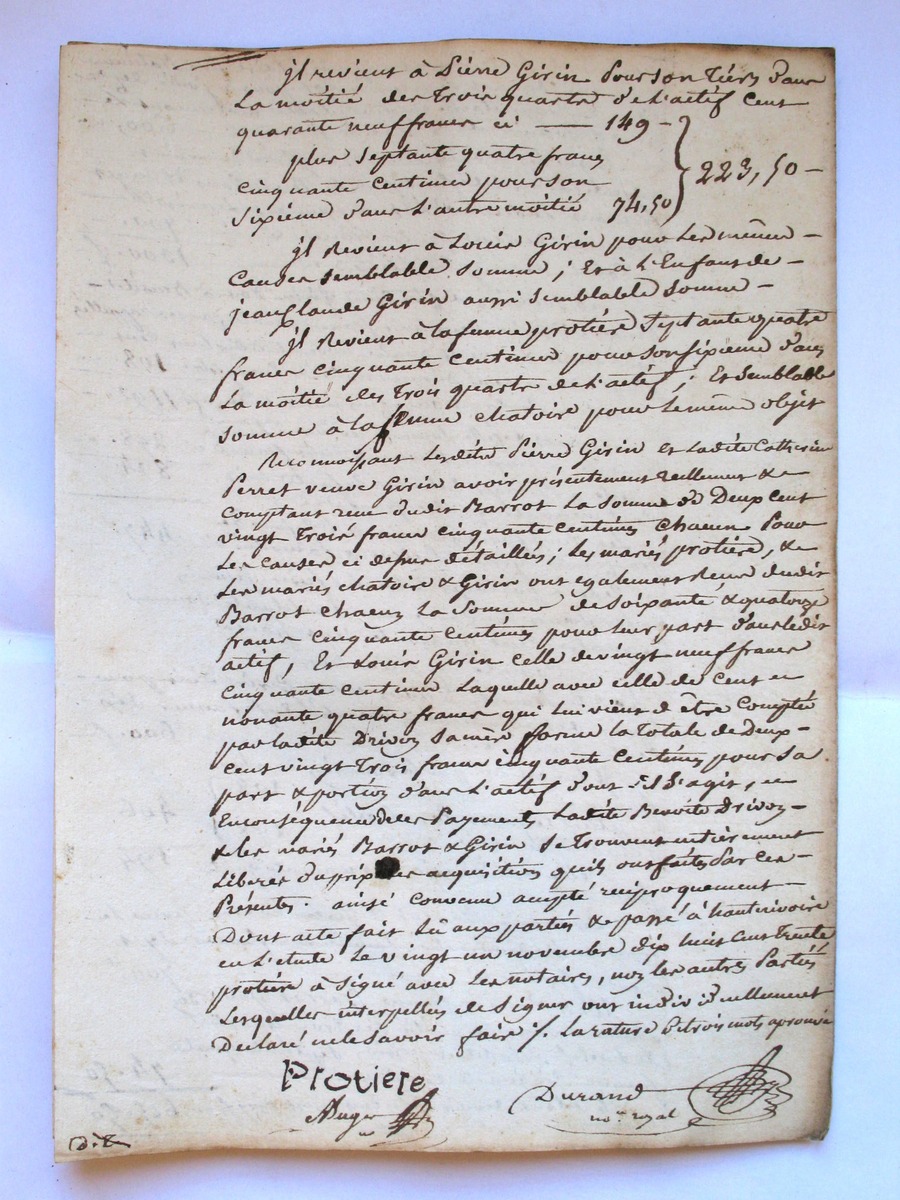 jl revient à Pierre Girin pour son tiers dans
La moitié des trois quarts de L'actif cent
quarante neuf francs ci — 149 -
plus septante quatre francs
cinquante centimes pour son
sixième dans L'autre moitié 74,50
223,50 -
jl Revient à Louis Girin pour Les mêmes -
causes semblable somme ; Et à L'Enfant de -
jean Claude Girin aussi semblable somme -
jl Revient à la femme protière septante quatre
francs cinquante centimes pour son sixième dans
La moitié des trois quarts de L'actif ; Et semblable
somme à la femme chatoire pour le même objet
Reconnoissant Lesdits Pierre Girin Et Ladite Catherine
Perret veuve Girin avoir présentement réellement & en
comptant reçu dudit Barrot La somme de Deux cent
vingt trois francs cinquante centimes chacun Pour
Les causes ci dessus détaillées ; Les mariés protière, &
Les mariés chatoire & Girin ont également Reçu dudit
Barrot chacun La somme de soixante & quatorze
francs cinquante centimes pour leur part dans ledit
actif, Et Louis Girin celle de vingt neuf francs
cinquante centimes Laquelle avec celle de cent
nonante quatre francs qui lui vient d'être comptée
par ladite Drivon sa mère forme la totale de Deux-
cent vingt trois francs cinquante centimes pour sa
part & portion dans L'actif dont il s'agit,
En conséquence de ces Payements Ladite Benoite Drivon -
& les mariés Barrot & Girin se trouvent entièrement
Libérés du prix des acquisitions qu'ils ont faites Par ces -
Présentes. ainsi convenu accepté réciproquement -
Dont acte fait Lû aux parties & passé à hauterivoire
en L'étude Le vingt un novembre dix huit cent trente
protière à signé avec Les notaires, non les autres Parties
Lesquelles interpellés de signer ont individuellement
Déclaré ne le savoir faire ./. La rature de trois mots aprouvé
Protiere
Durand
no.re royal